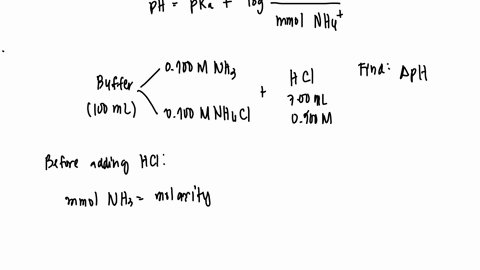 pH = pKa + log
mmol NH4+
Buffer
(100 mL)
0.100 M NH3
0.100 M NH4Cl
+
HCl
7.00 mL
0.100 M
Find: ΔpH
Before adding HCl:
mmol NH3 = molarity